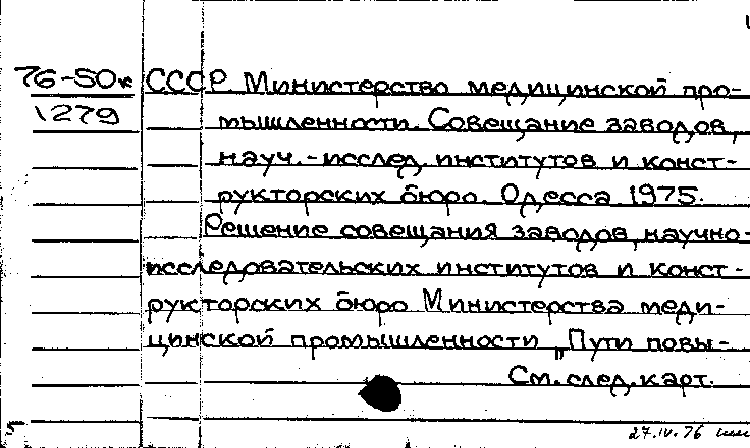 76-50к СССР. Министерство медицинской про-
1279 мышленности. Совещание заводов,
науч.-исслед. институтов и конст-
рукторских бюро. Одесса. 1975.
Решение совещания заводов, научно-
исследовательских институтов и конст-
рукторских бюро Министерства меди-
цинской промышленности "Пути повы-
См. след. карт.
5
27.IV.76